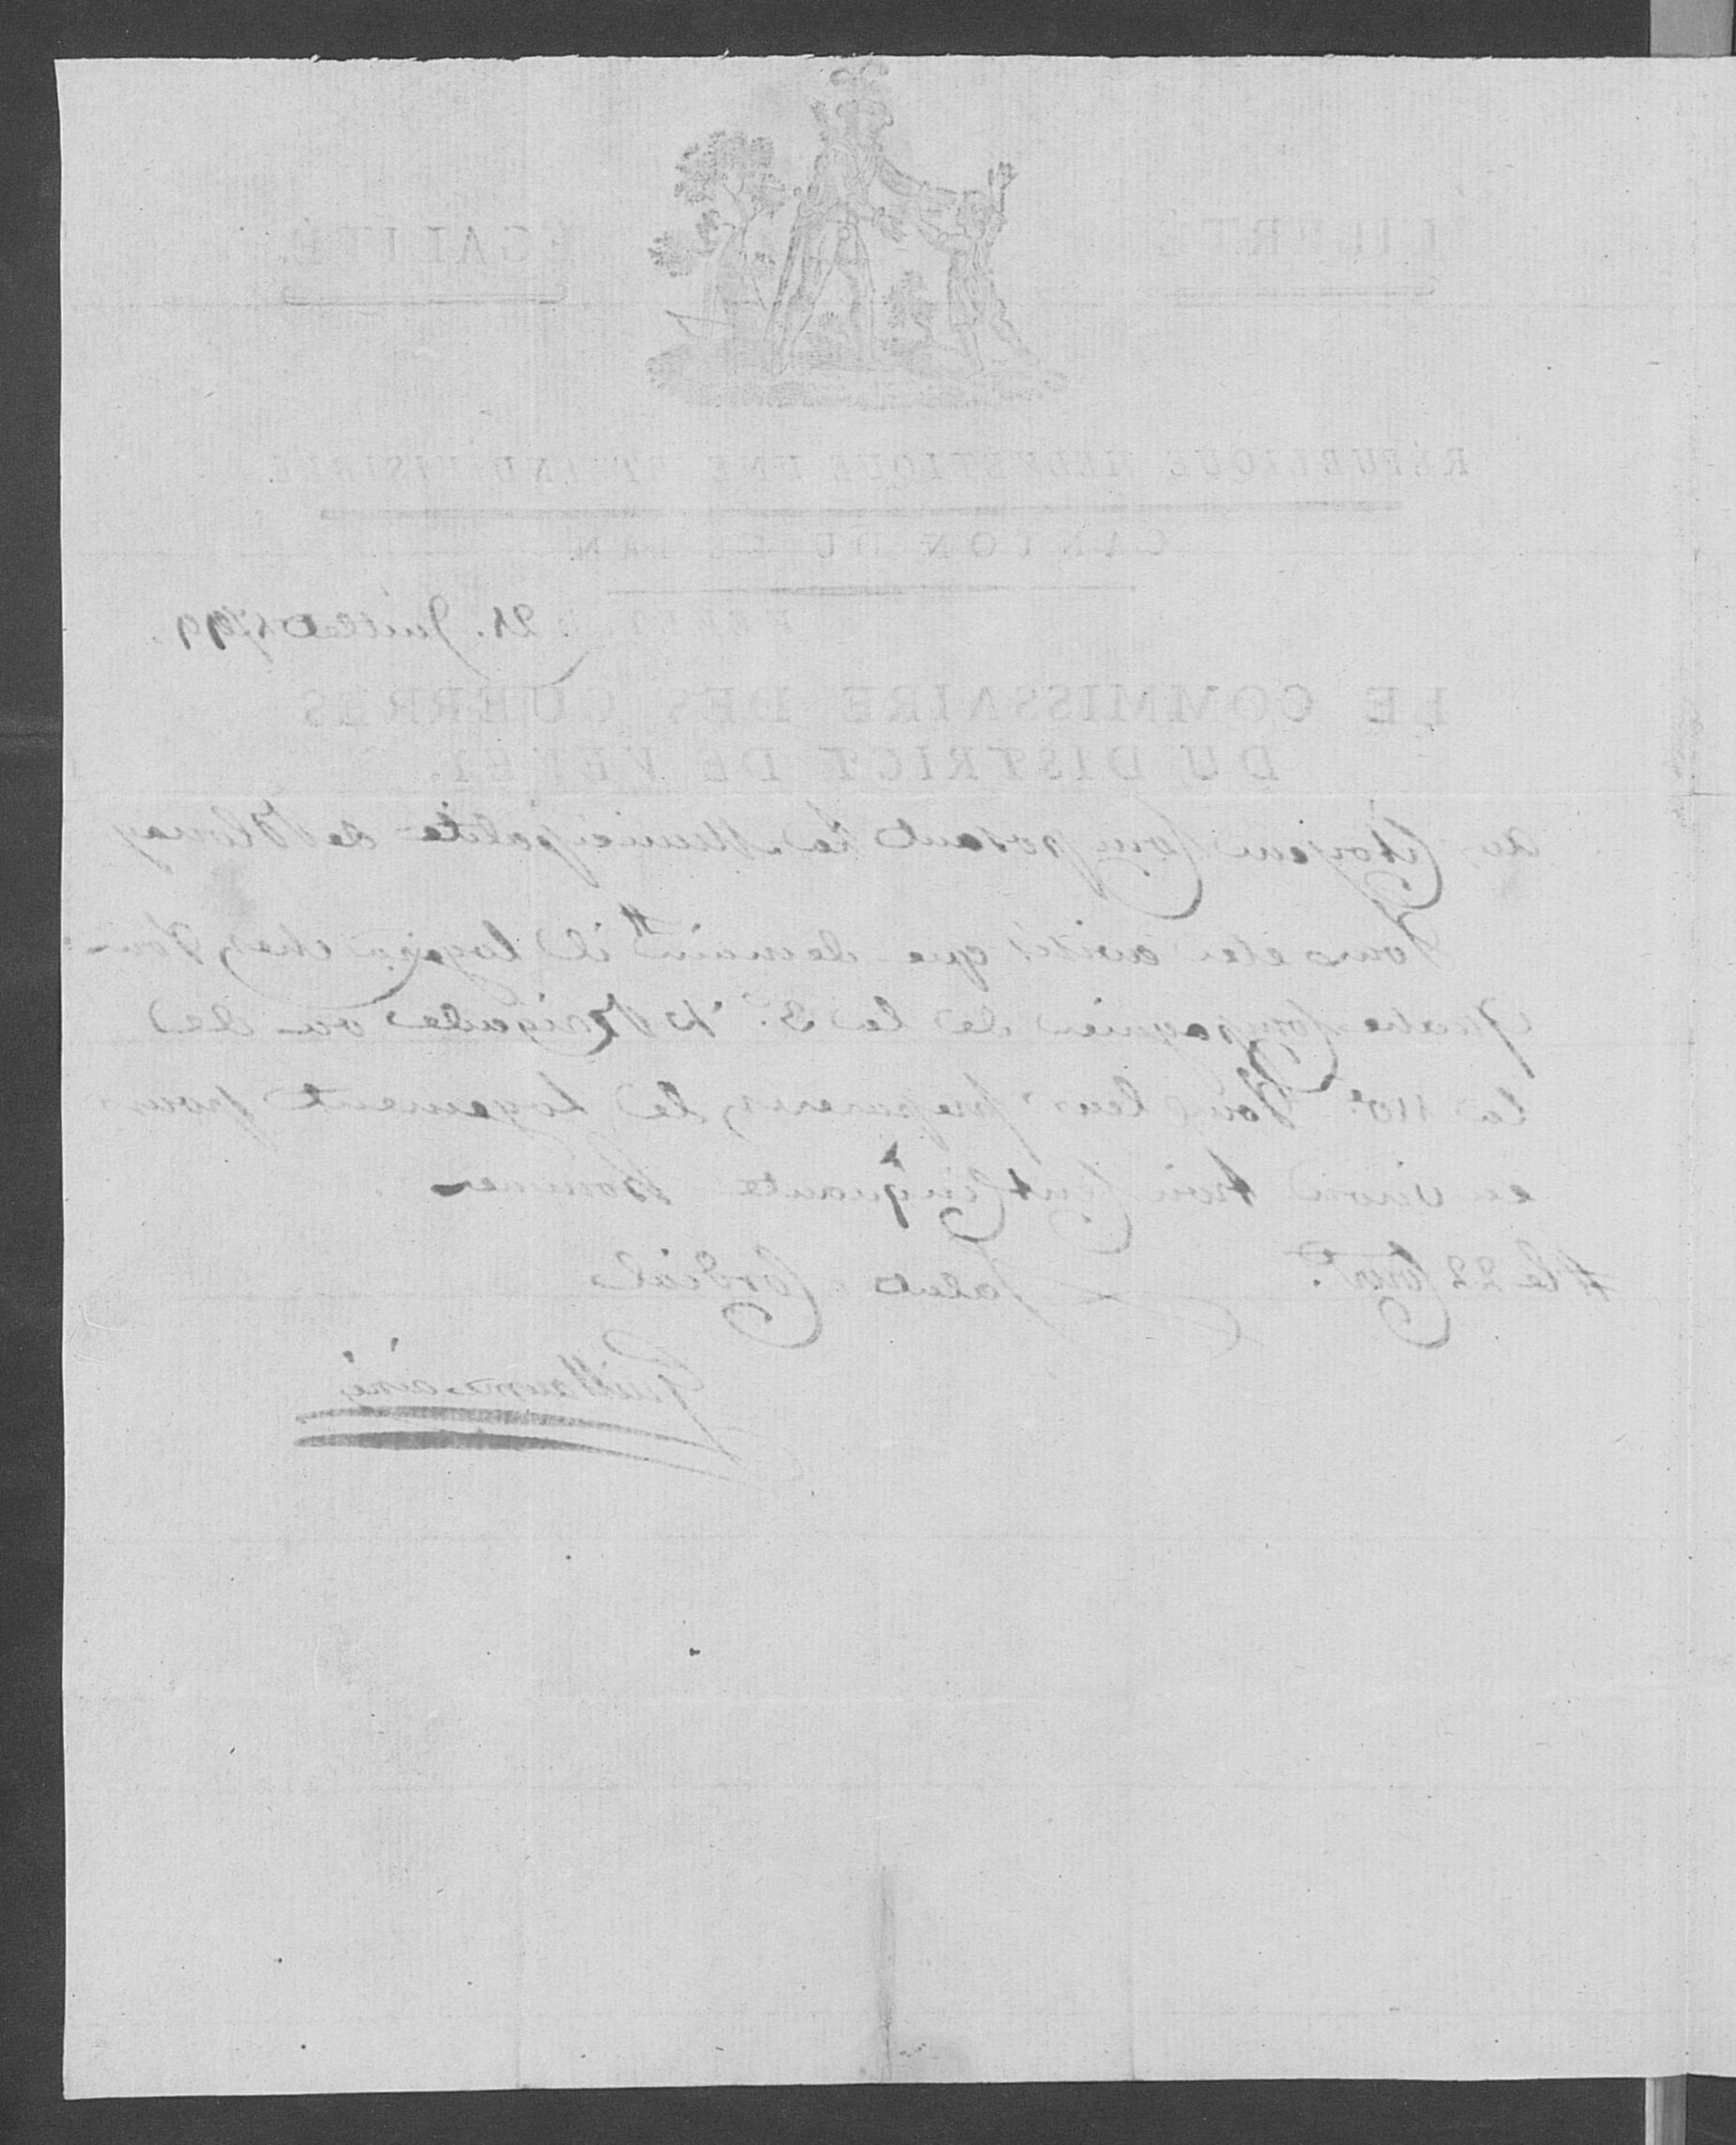 LIBERTÉ. EGALITÉ.
RÉPUBLIQUE HELVÉTIQUE UNE ET INDIVISIBLE.
CANTON DU LÉMAN.
21. Juillet 1799.
LE COMMISSAIRE DES GUERRES
DU DISTRICT DE VEVEY.
au Citoyens Composant la Municipalité de Blonay
Vous etes avisés que demain # il logera chez Vous
quatre Compagnies de la 3e. 1/2 Brigade ou de
la 110e Vous leur preparerez le Logement pour
environ trois Cent Cinquante hommes
# le 22 Cour.t
Salut Cordial
Guillaume ainé